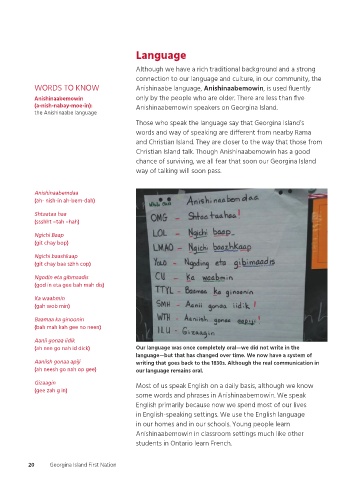 Language
Although we have a rich traditional background and a strong
connection to our language and culture, in our community, the
Anishinaabe language, Anishinaabemowin, is used fluently
only by the people who are older. There are less than five
Anishinaabemowin speakers on Georgina Island.
Those who speak the language say that Georgina Island's
words and way of speaking are different from nearby Rama
and Christian Island. They are closer to the way that those from
Christian Island talk. Though Anishinaabemowin has a good
chance of surviving, we all fear that soon our Georgina Island
way of talking will soon pass
WORDS TO KNOW
Anishinaabemowin
(a-nish-nabay-moe-in):
the Anishinaabe language
Anishinaabemdaa
(ah- nish-in ah-bem-dah)
Shtaataa haa
(ssshht –tah –hah)
Ngichi Baap
(git chay bop)
Ngichi baashkaap
(git chay baa szhh cop)
Ngodin eta gibimaadis
(god in eta gee bah mah dis)
Ka waabmin
(gah wob min)
Baamaa ka ginoonin
(bah mah kah gee no neen)
Aanii gonaa iidik
(ah nee go nah id dick)
Aaniish gonaa apiji
(ah neesh go nah oo gee)
Gizaagin
(gee zah g in)
Anishinaabemdaa
OMG - Shtaataahaa!
LOL - Ngichi baap
LMAO - Ngichi baazhkaap
YOLO - Ngoding eta gibimaadis
CU - Ka waabmin
TTYL - Baamaa ka ginoonin
SMH - Aanii gonaa iidik!
WTH - Aaniish gonaa apiji!
ILU - Gizaagin
Our language was once completely oral—we did not write in the
language—but that has changed over time. We now have a system of
writing that goes back to the 1830s. Although the real communication in
our language remains oral.
Most of us speak English on a daily basis, although we know
some words and phrases in Anishinaabemowin. We speak
English primarily because now we spend most of our lives
in English-speaking settings. We use the English language
in our homes and in our schools. Young people learn
Anishinaabemowin in classroom settings much like other
students in Ontario learn French.
20 Georgina Island First Nation